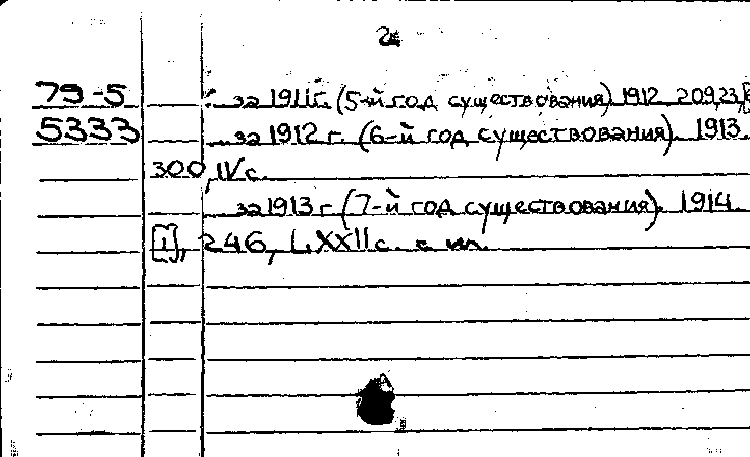 2
79-5 за 1911г. (5-й год существования) 1912 209,23
5333 за 1912 г. (6-й год существования). 1913.
300, IV с.
за 1913 г (7-й год существования). 1914
[1], 246, LXXII с. с ил.